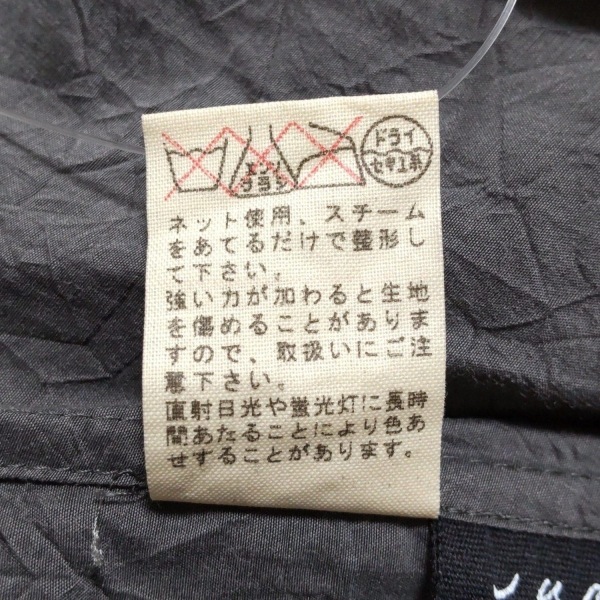 エンソ
サラシ
ドライ
セキユ系
ネット使用、スチーム
をあてるだけで整形し
て下さい。
強い力が加わると生地
を傷めることがありま
すので、取扱いにご注
意下さい。
直射日光や蛍光灯に長時
間あたることにより色あ
せすることがあります。